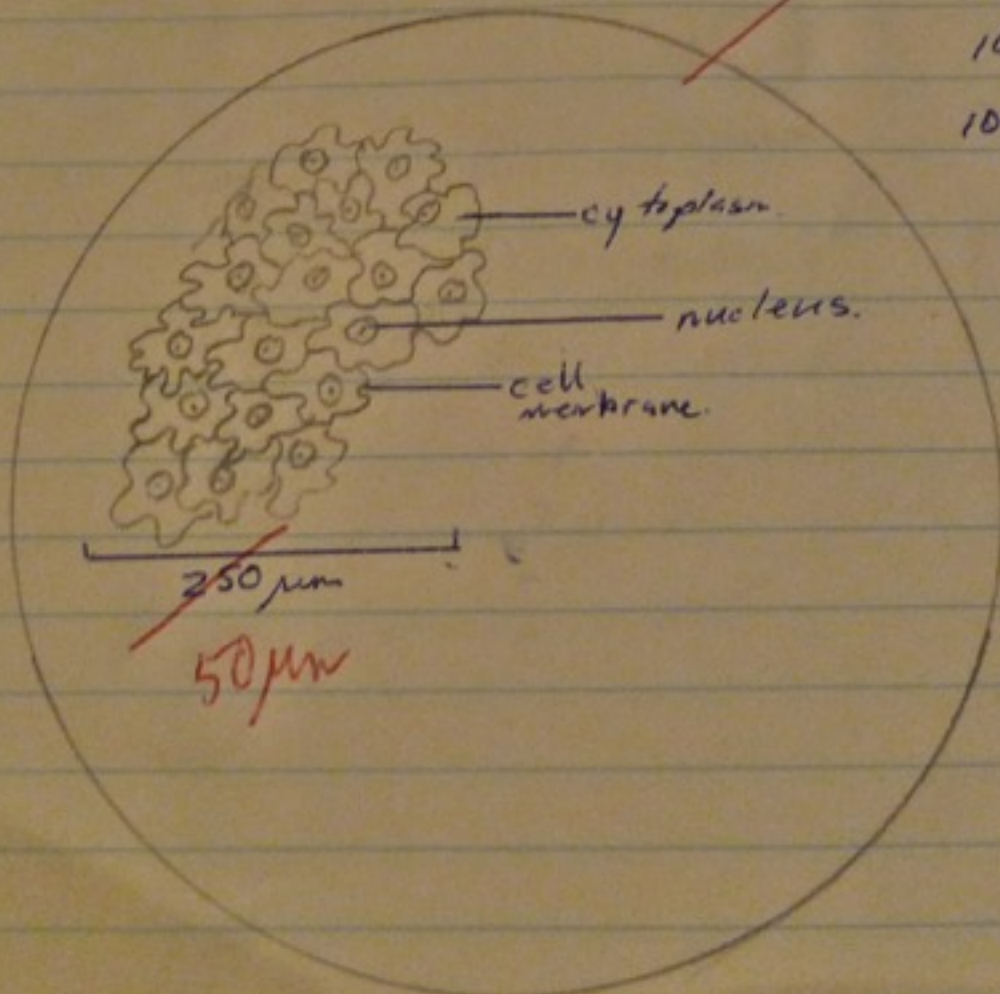 10
10
cytoplasm.
nucleus.
cell
membrane.
250 µm
50 µm